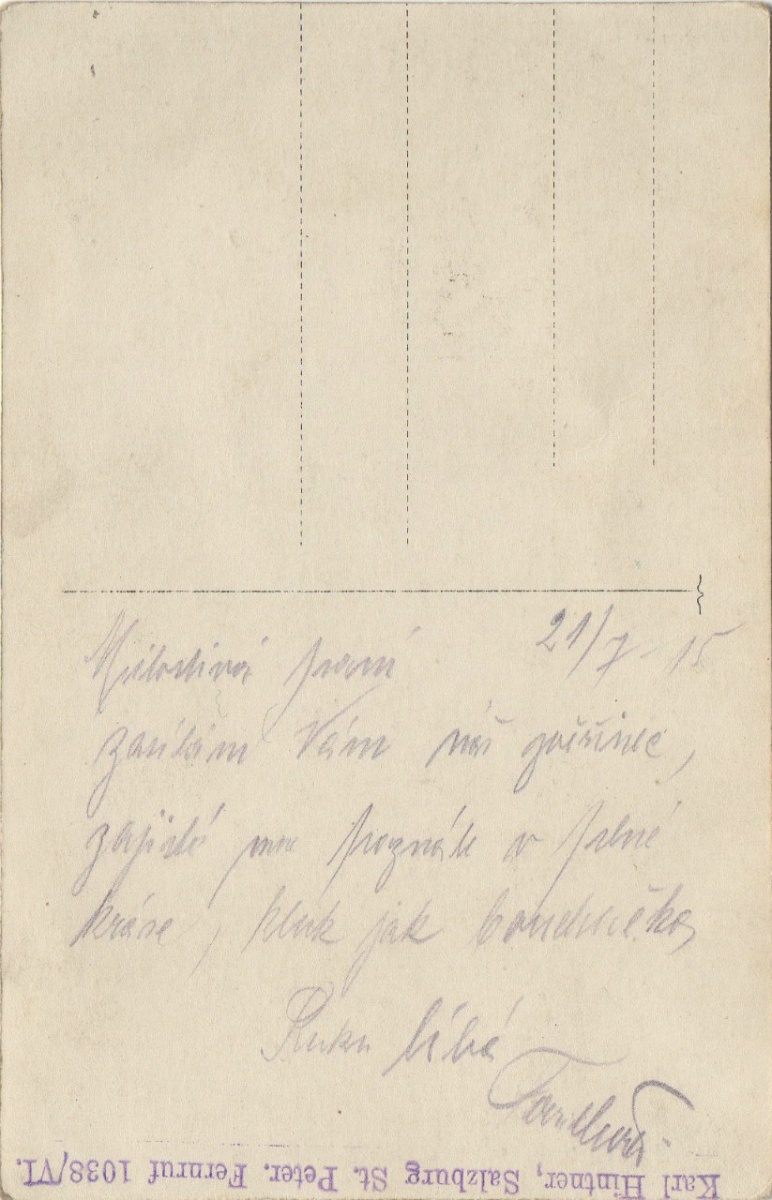 21/7 - 15
Milostivá paní
zasílám Vám náš zvěřinec,
zajisté mne poznáte v plné
kráse, kluk jak
Ruku líbá
Karl Hintner, Salzburg St. Peter. Fernruf 1038/VI.